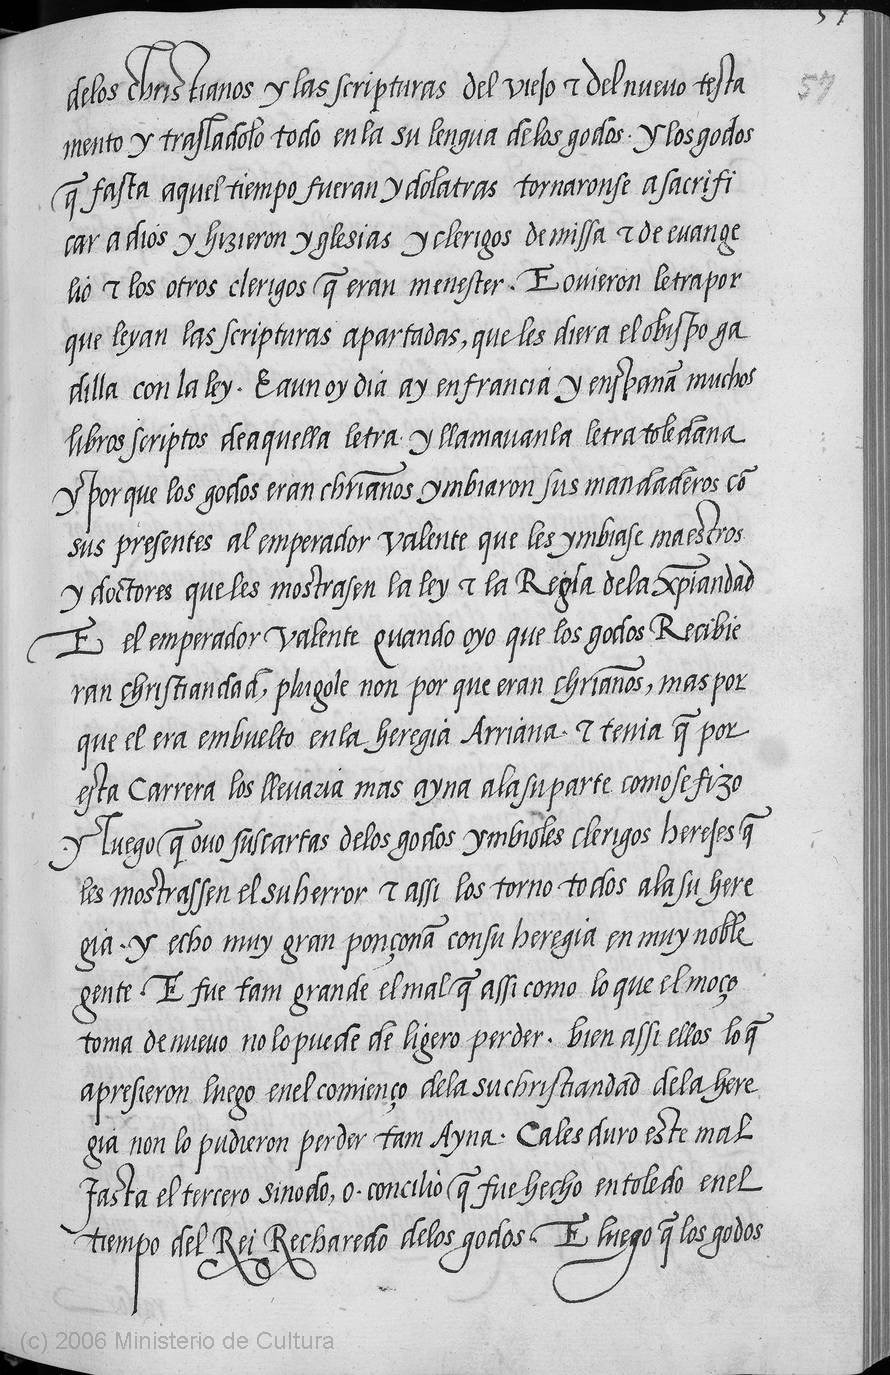 57
57
delos christianos y las scripturas del viejo τ del nuevo testa
mento y trasladolo todo en la su lengua de los godos. y los godos
q̃ fasta aquel tiempo fueran ydolatras tornaronse a sacrifi
car a dios y hizieron yglesias y clerigos de missa τ de euange
lio τ los otros clerigos q̃ eran menester. E ouieron letra por
que leyan las scripturas apartadas, que les diera el obispo ga
dilla con la ley. E aun oy dia ay en francia y enspana muchos
libros scriptos de aquella letra. y llamauanla letra toledana
y porque los godos eran chrianos ymbiaron sus mandaderos cõ
sus presentes al emperador valente que les ymbiase maestros
y doctores que les mostrasen la ley τ la Regla de la xp̃iandad
E el emperador valente quando oyo que los godos Recibie
ran christiandad, plugole non por que eran chrianos, mas por
que el era embuelto en la heregia Arriana. τ tenia q̃ por
esta Carrera los lleuaria mas ayna a la su parte como se fizo
y luego q̃ ouo sus cartas de los godos ymbioles clerigos herejes q̃
les mostrassen el su herror τ assi los torno todos a la su here
gia. y echo muy gran ponçona con su heregia en muy noble
gente. E fue tam grande el mal q̃ assi como lo que el moço
toma de nuevo no lo puede de ligero perder. bien assi ellos lo q̃
apresieron luego en el comienço de la su christiandad de la here
gia non lo pudieron perder tam Ayna. Cales duro este mal
fasta el tercero sinodo, o. concilio q̃ fue hecho en toledo en el
tiempo del Rei Recharedo de los godos. E luego q̃ los godos
(c) 2006 Ministerio de Cultura